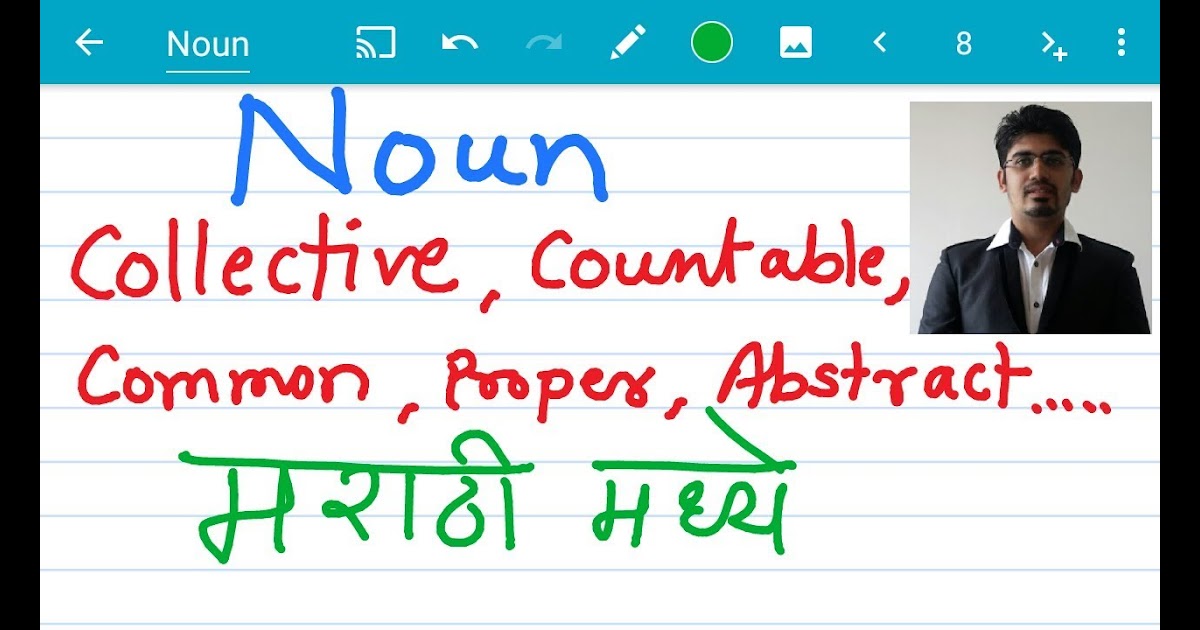 Noun 8
Noun
Collective, Countable,
Common, Proper, Abstract.....
मराठी मध्ये